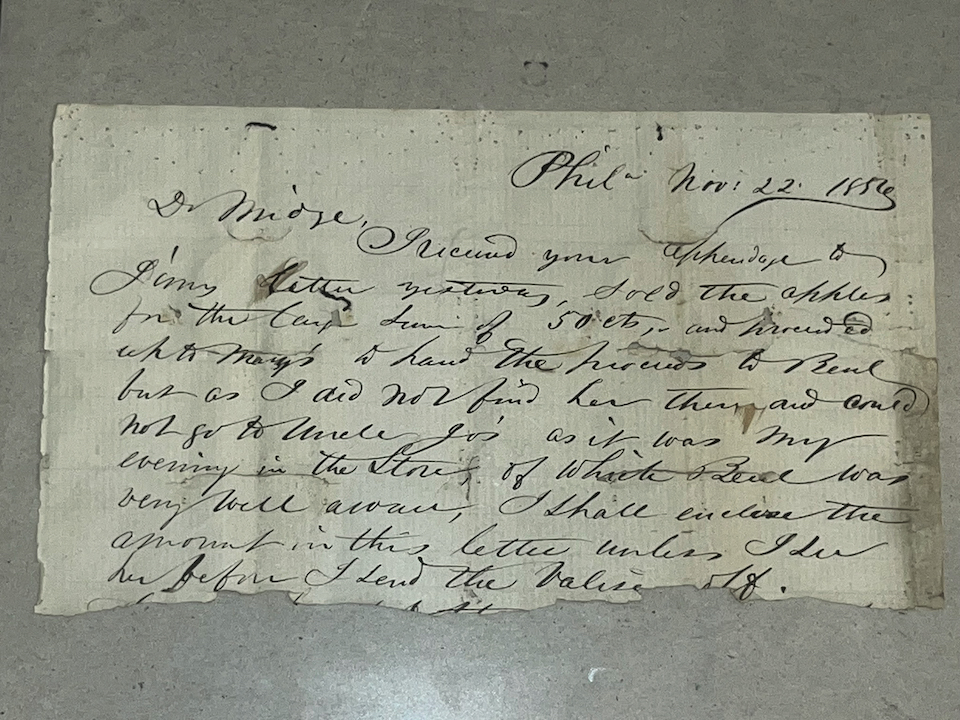 Phila Nov: 22. 1856
Dr Midge,
I received your appendage to
Jim's letter yesterday, sold the apples
for the large sum of 50 cts, and proceeded
up to Mary's to hand the proceeds to Beul
but as I did not find her there, and could
not go to Uncle Jo's as it was my
evening in the Store, of which Beul was
very well aware, I shall enclose the
amount in this letter unless I see
her before I send the Valise off.